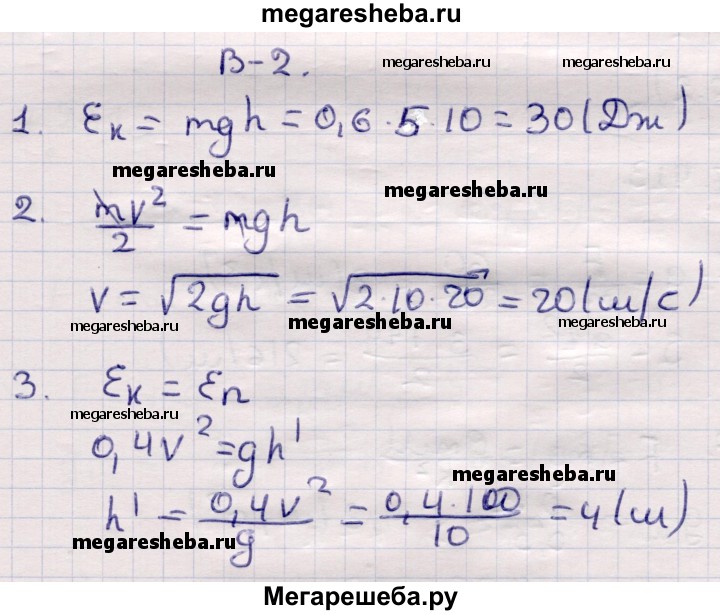 megaresheba.ru
В-2.
megaresheba.ru megaresheba.ru
1. Eк = mgh = 0,6·5·10 = 30 (Дж)
megaresheba.ru
megaresheba.ru
2. mv²/2 = mgh
v = √2gh = √2·10·20 = 20 (м/с)
megaresheba.ru megaresheba.ru megaresheba.ru
3. Eк = Eп
megaresheba.ru
0,4v² = gh'
megaresheba.ru
h' = 0,4v²/g = 0,4·100/10 = 4 (м)
megaresheba.ru
Мегарешеба.ру